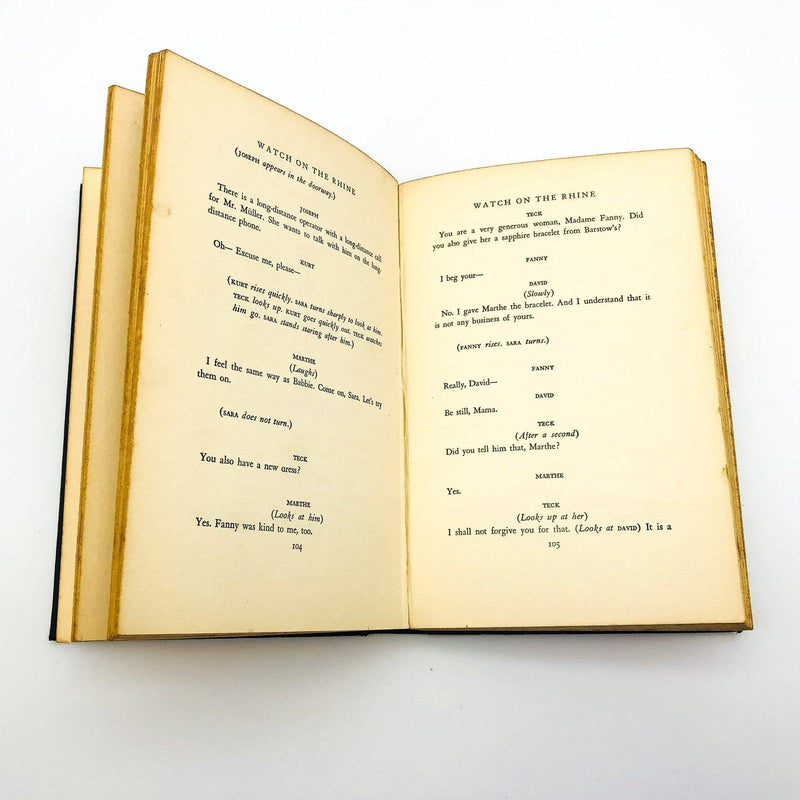 WATCH ON THE RHINE
(JOSEPH appears in the doorway.)
JOSEPH
There is a long-distance operator with a long-distance call
for Mr. Müller. She wants to talk with him on the long-
distance phone.
KURT
Oh— Excuse me, please—
(KURT rises quickly. SARA turns sharply to look at him.
TECK looks up. KURT goes quickly out. TECK watches
him go. SARA stands staring after him.)
MARTHE
(Laughs)
I feel the same way as Babbie. Come on, Sara. Let's try
them on.
(SARA does not turn.)
TECK
You also have a new dress?
MARTHE
(Looks at him)
Yes. Fanny was kind to me, too.
104
WATCH ON THE RHINE
TECK
You are a very generous woman, Madame Fanny. Did
you also give her a sapphire bracelet from Barstow's?
FANNY
I beg your—
DAVID
(Slowly)
No. I gave Marthe the bracelet. And I understand that it
is not any business of yours.
(FANNY rises. SARA turns.)
FANNY
Really, David—
DAVID
Be still, Mama.
TECK
(After a second)
Did you tell him that, Marthe?
MARTHE
Yes.
TECK
(Looks up at her)
I shall not forgive you for that. (Looks at DAVID) It is a
105